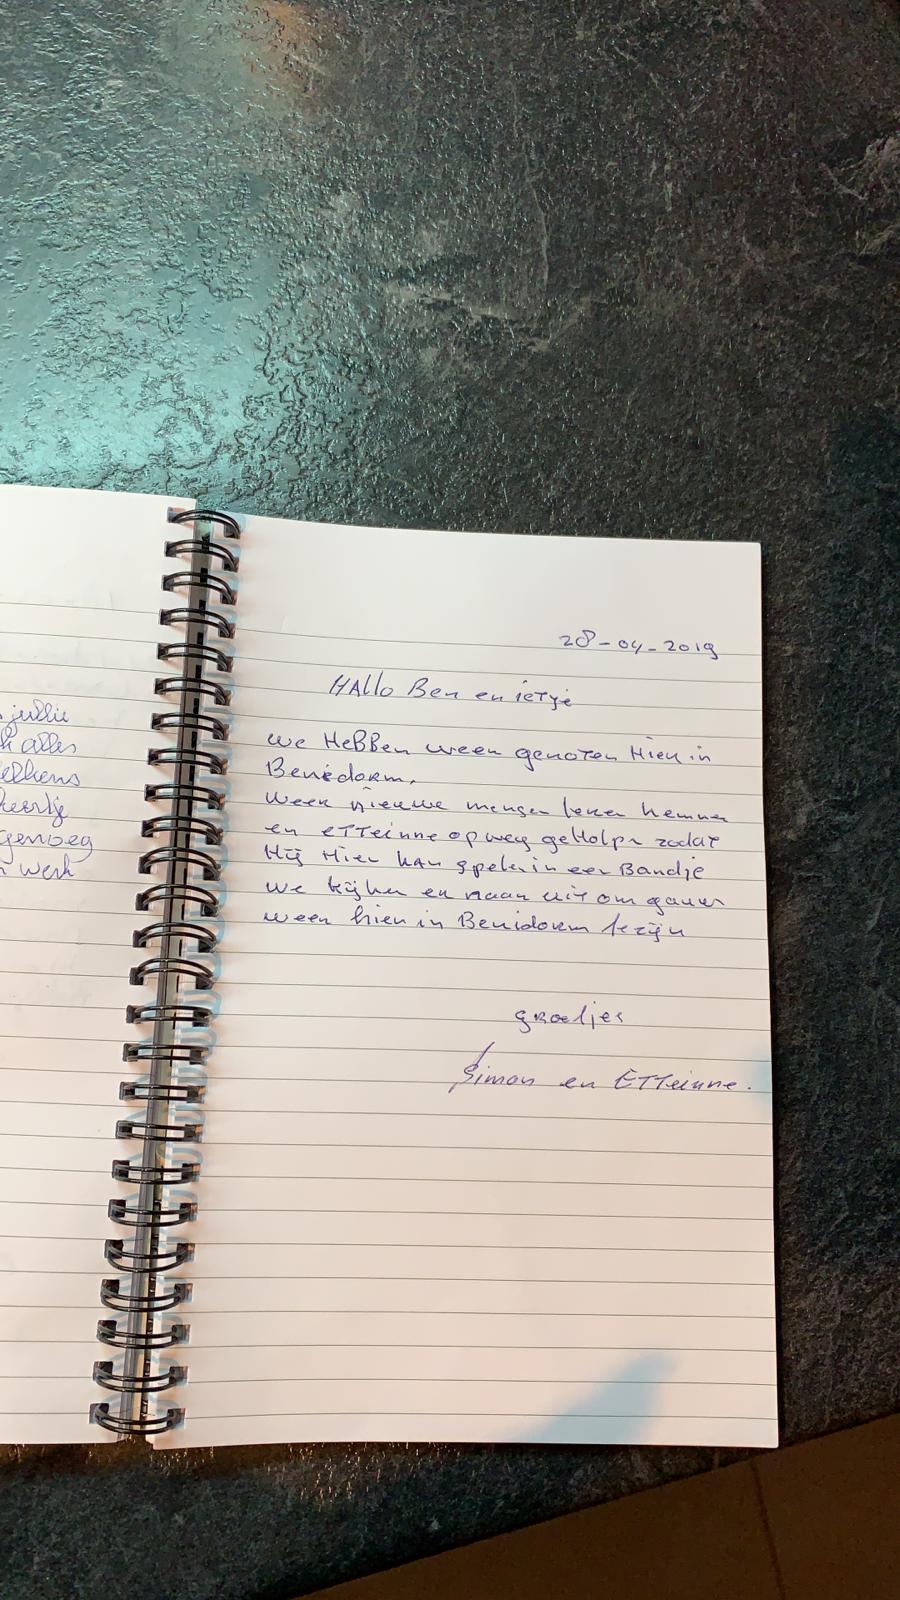 s jullie
k alles
telkens
keertje
genoeg
n werk
28-04-2019
HAllo Ben en ietje
we HeBBen weer genoten Hier in
Benidorm.
weer nieuwe mensen leren kennen
en eTTeinne op weg geHolpn zodat
Hij Hier kan spelen in een Bandje
we kijken er naar uit om gauw
weer hier in Benidorm te zijn
groetjes
Simon en ETTeinne.